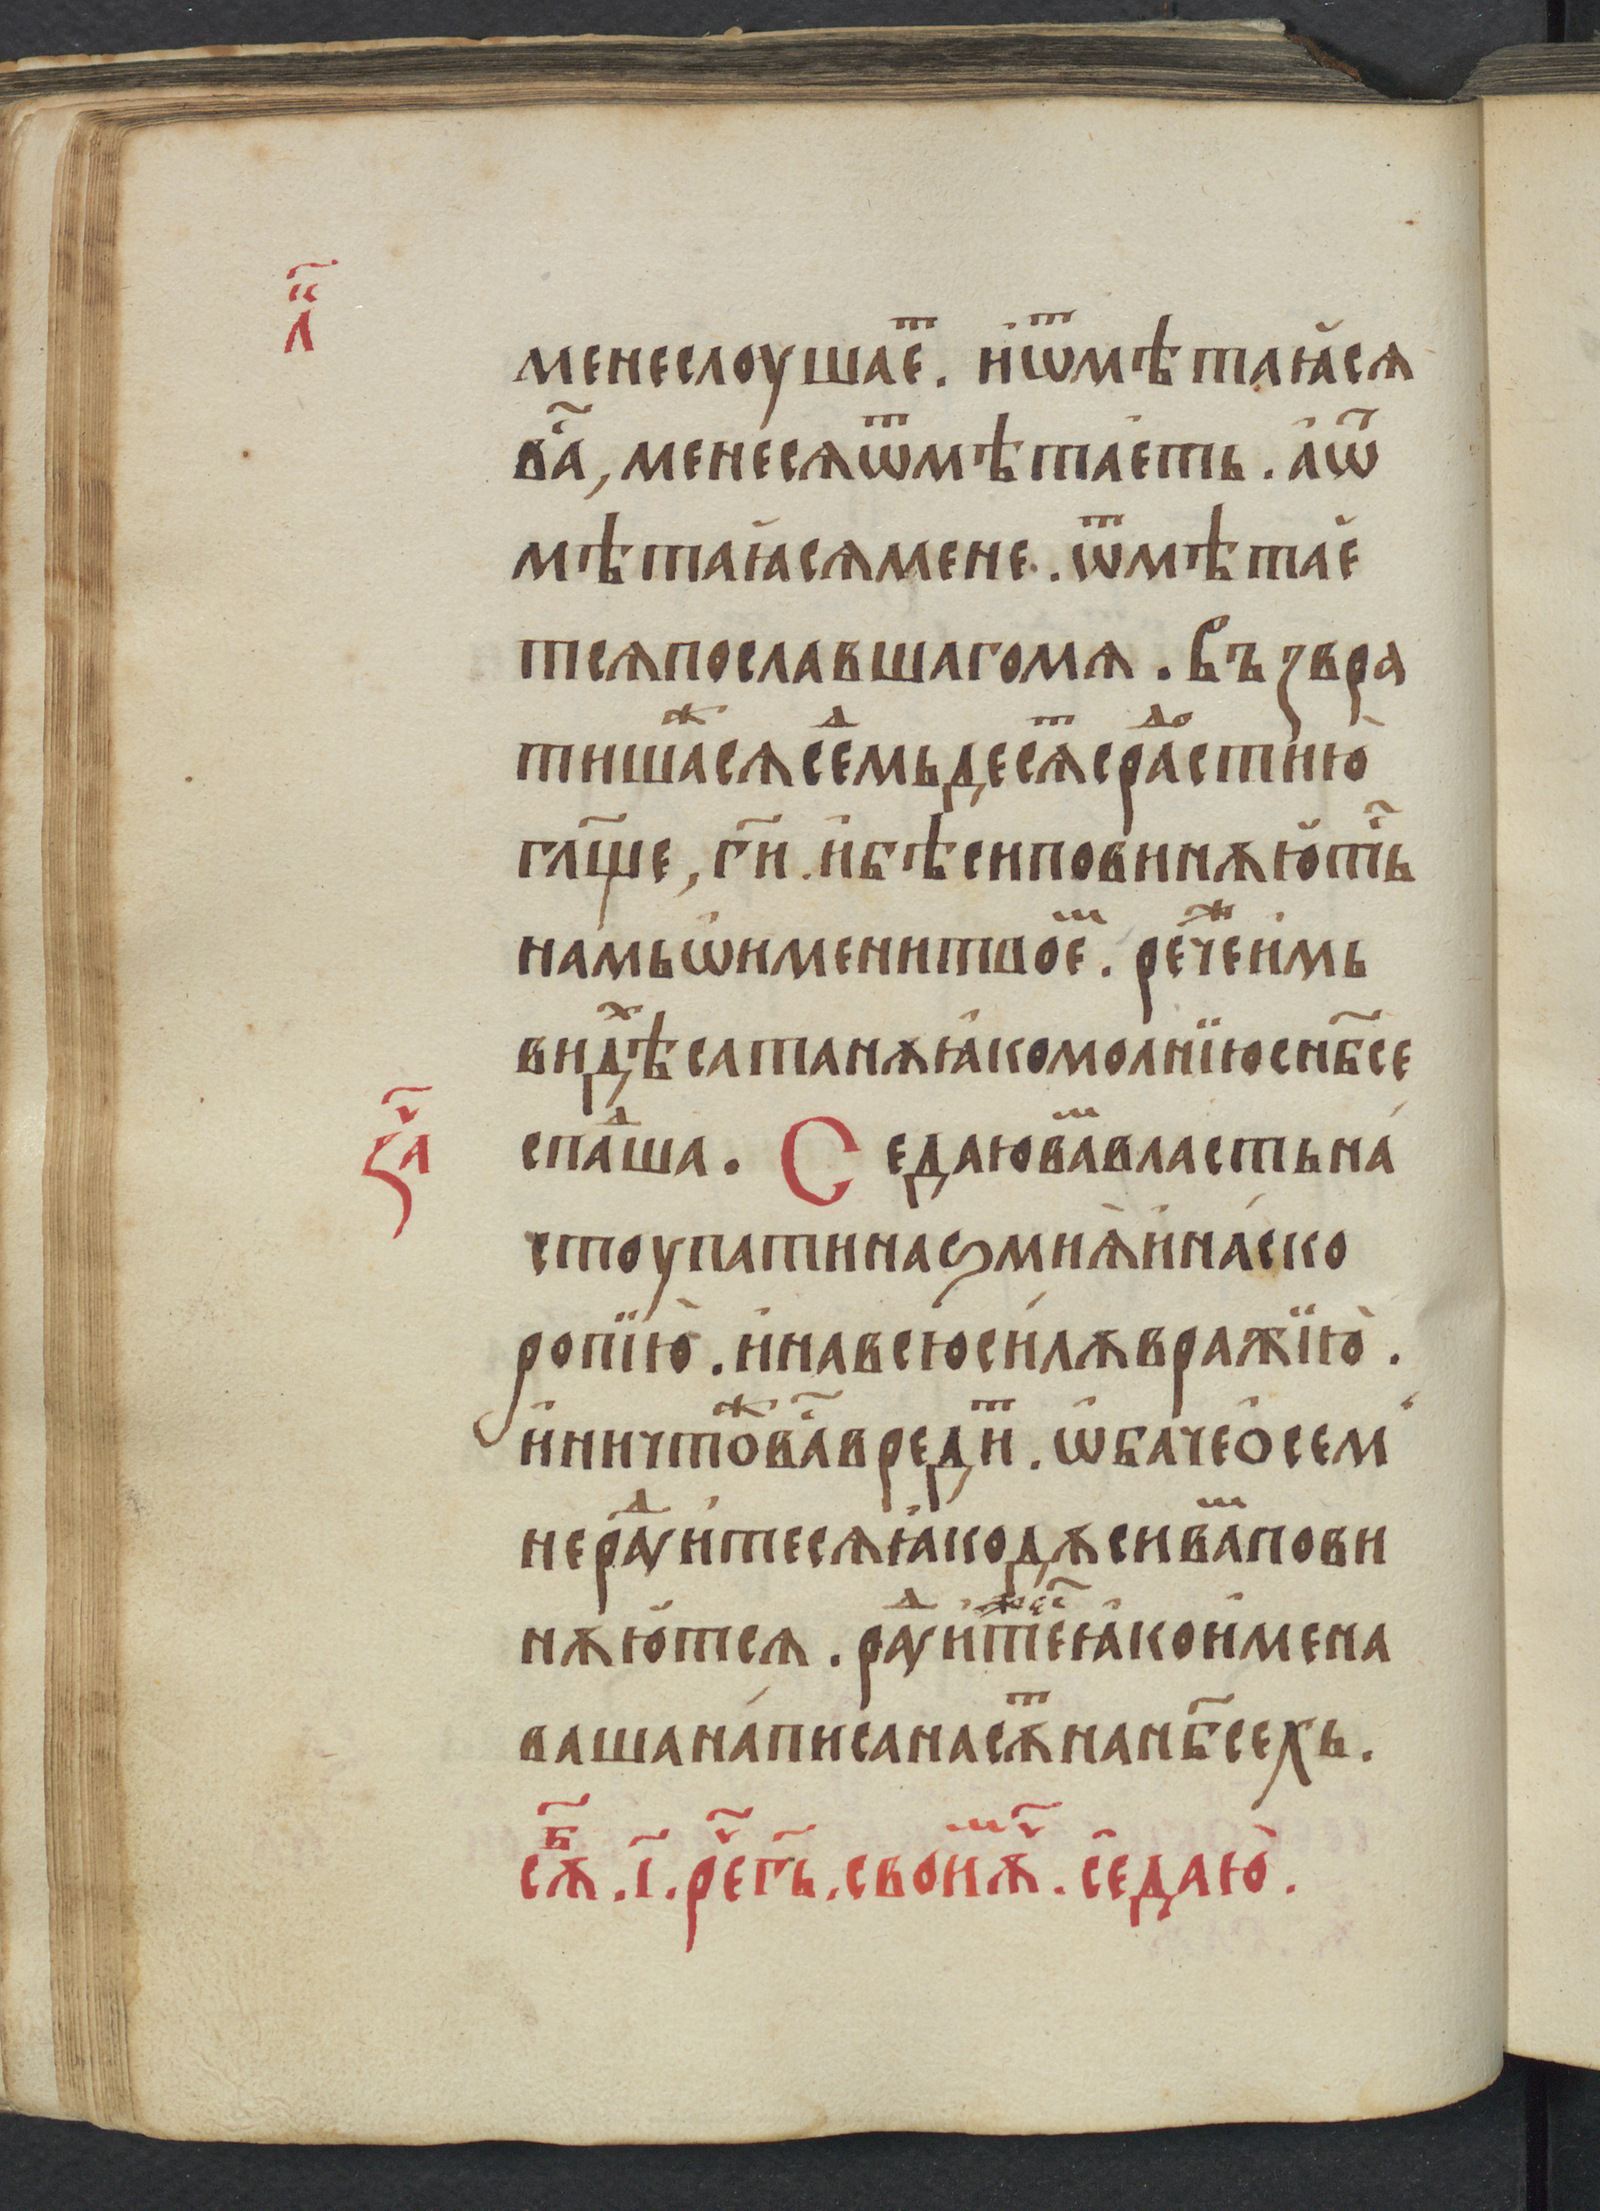 л҃
менеслоушаеⷮ. иѿмѣтаꙗисѧ
ва҃, менесѧѿмѣтаеть. аѿ
мѣтаꙗсѧмене. ѿмѣтае
тсѧпославшагомѧ. Въꙁвра
тишаⷤсѧсемⷣьдесѧⷮсраⷣостию
гл҃ще, гн҃и. ибѣсиповинѫютьⷭ҇
намьѡименитвоеⷨ. речеⷤимь
видѣⷯсатанѫꙗкомолнїюснб҃се
спаⷣша. Седаюваⷨвластьна
ꙁа҃ⷱ
стоупатинаꙃмиѧинаско
ропїю. инавсюсилѫвражїю.
иничтоⷤваⷭ҇вредиⷮ. ѡбачеосем
нераⷣуитесѧꙗкодѫсиваⷨпови
нѫютсѧ. раⷣуитеⷤсⷭ҇ꙗкоимена
вашанаписанасѫⷮнанб҃сехь.
сѫⷠ҇. і҃. реⷱ҇гь҃. своиⷨѫⷱ҇. седаю.